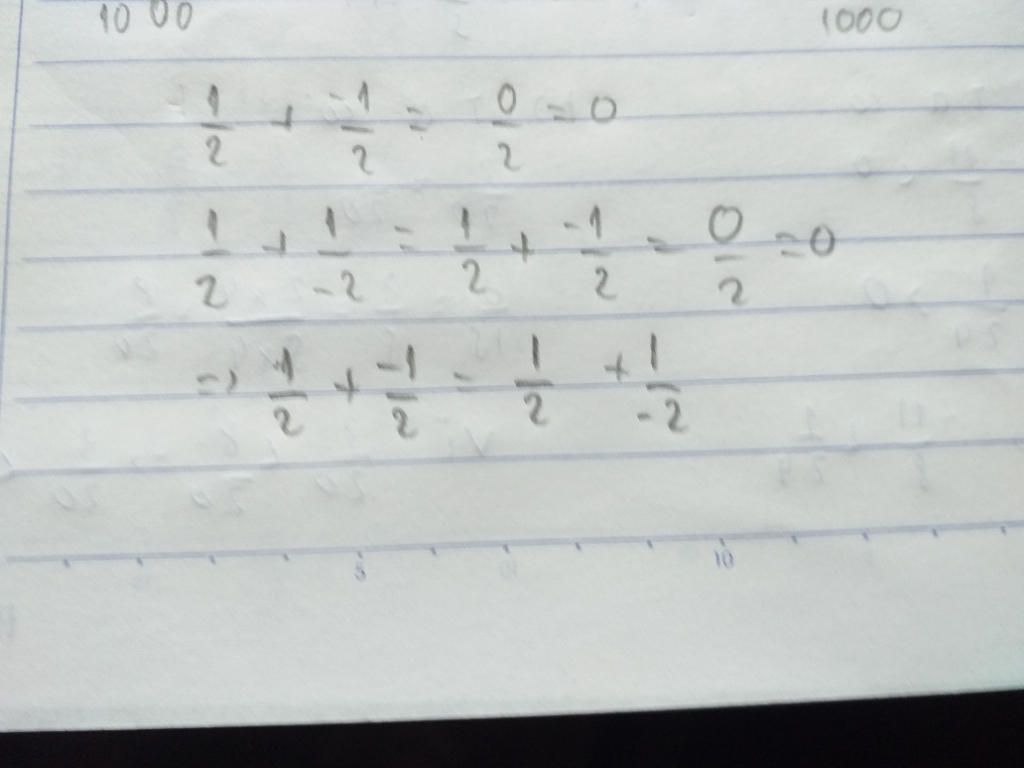 10 00 1000
1/2 + -1/2 = 0/2 = 0
1/2 + 1/-2 = 1/2 + -1/2 = 0/2 = 0
=> 1/2 + -1/2 = 1/2 + 1/-2
5 10